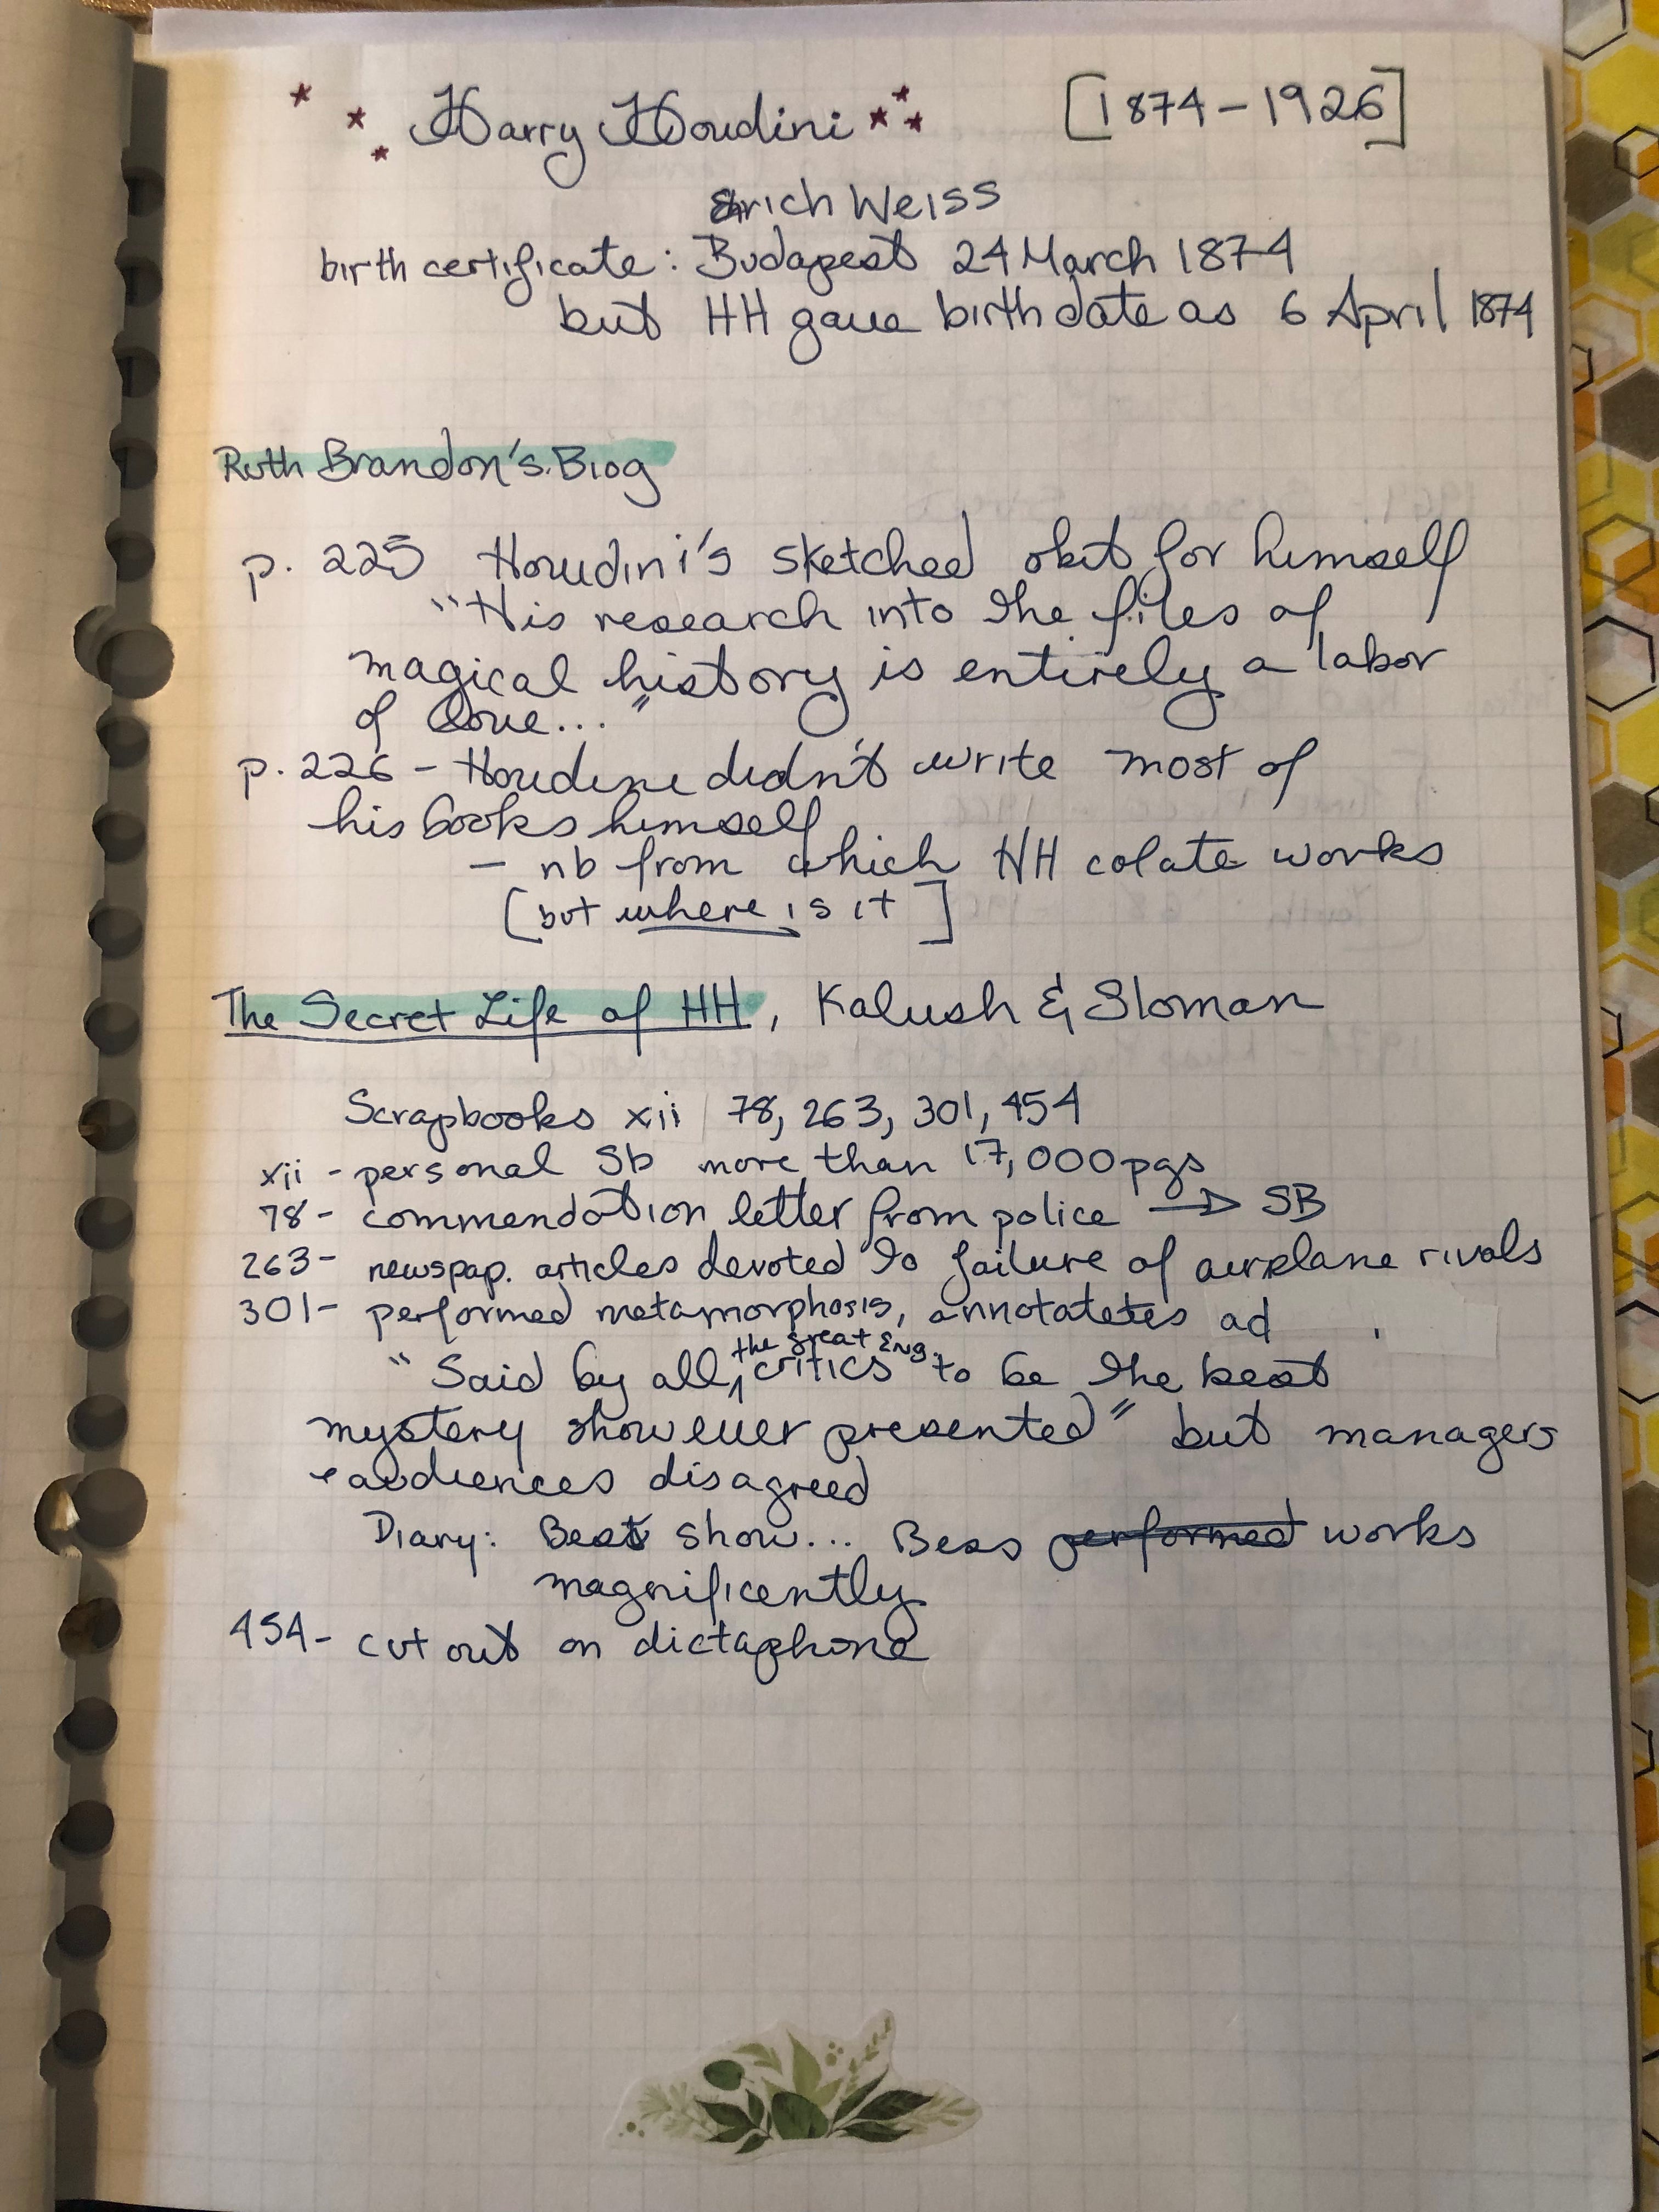 Harry Houdini [1874-1926]
Erich Weiss
birth certificate: Budapest 24 March 1874
but HH gave birthdate as 6 April 1874
Ruth Brandon's Biog
p. 225 Houdini's sketched obit for himself
"His research into the files of
magical history is entirely a labor
of love..."
p. 226 - Houdini didn't write most of
his books himself
- nb from which HH colate works
[but where is it]
The Secret Life of HH, Kalush & Sloman
Scrapbooks xii 78, 263, 301, 454
xii - personal Sb more than 17,000 pgs
78 - commendation letter from police → SB
263 - newspap. articles devoted to failure of airplane rivals
301 - performed metamorphosis, annotatetes ad
the great Eng.
"Said by all, critics to be the best
mystery show ever presented" but managers
+ audiences disagreed
Diary: Best show... Bess performed works
magnificently
454 - cut out on dictaphone